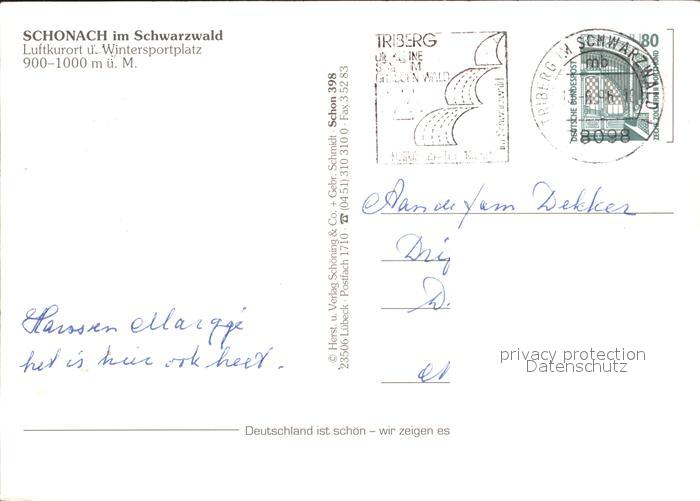 SCHONACH im Schwarzwald
Luftkurort u. Wintersportplatz
900–1000 m ü. M.
TRIBERG
© Herst. u. Verlag Schöning & Co. + Gebr. Schmidt · Schon 398
23506 Lübeck · Postfach 1710 · ☎ (04 51) 310 310 0 · Fax 3 52 83
TRIBERG IM SCHWARZWALD
mb
8098
80
DEUTSCHE BUNDESPOST
Aan de fam Dekker
D.
Hanssen
het is hier ook heet.
privacy protection
Datenschutz
Deutschland ist schön – wir zeigen es